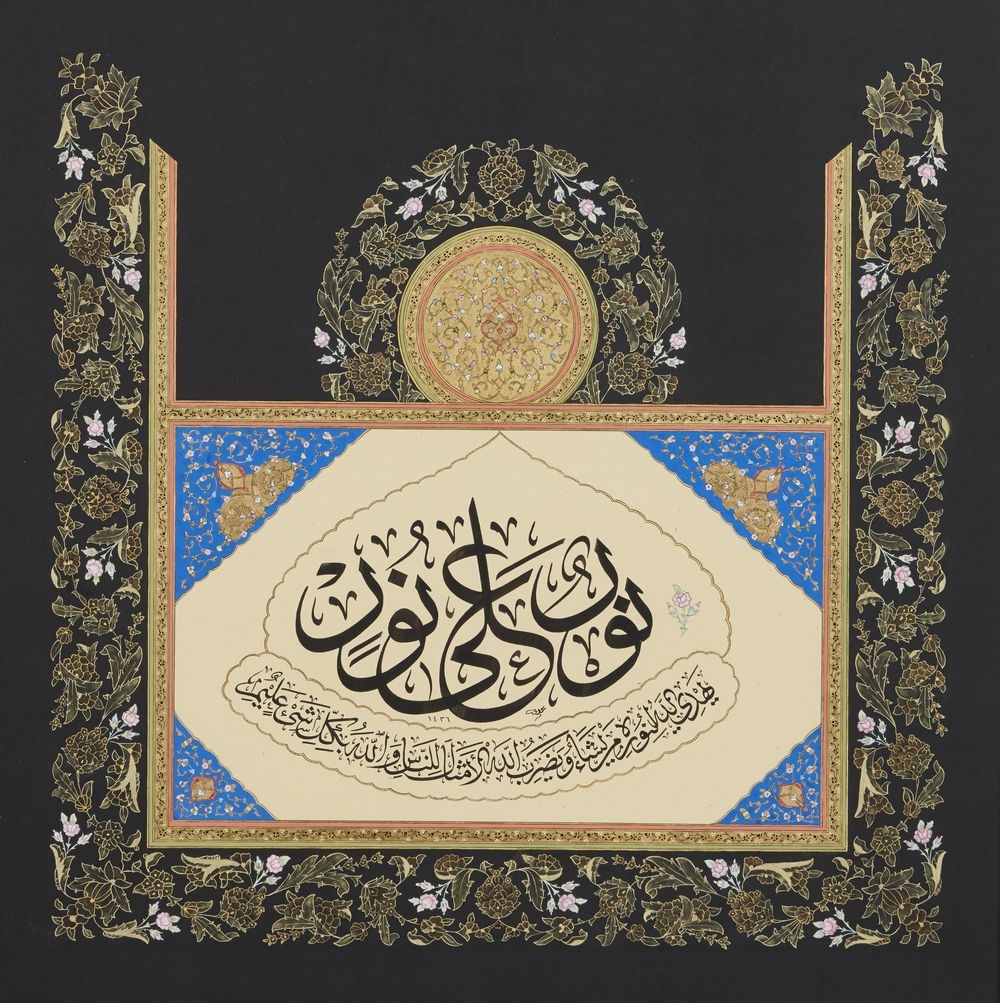 نُورٌ عَلَىٰ نُورٍ
١٤٣٦
يَهْدِي اللَّهُ لِنُورِهِ مَنْ يَشَاءُ وَيَضْرِبُ اللَّهُ الْأَمْثَالَ لِلنَّاسِ وَاللَّهُ بِكُلِّ شَيْءٍ عَلِيمٌ